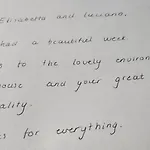 Elisabetta and Luciano,
had a beautiful week
to the lovely environ
house and your great
ality.
s for everything.